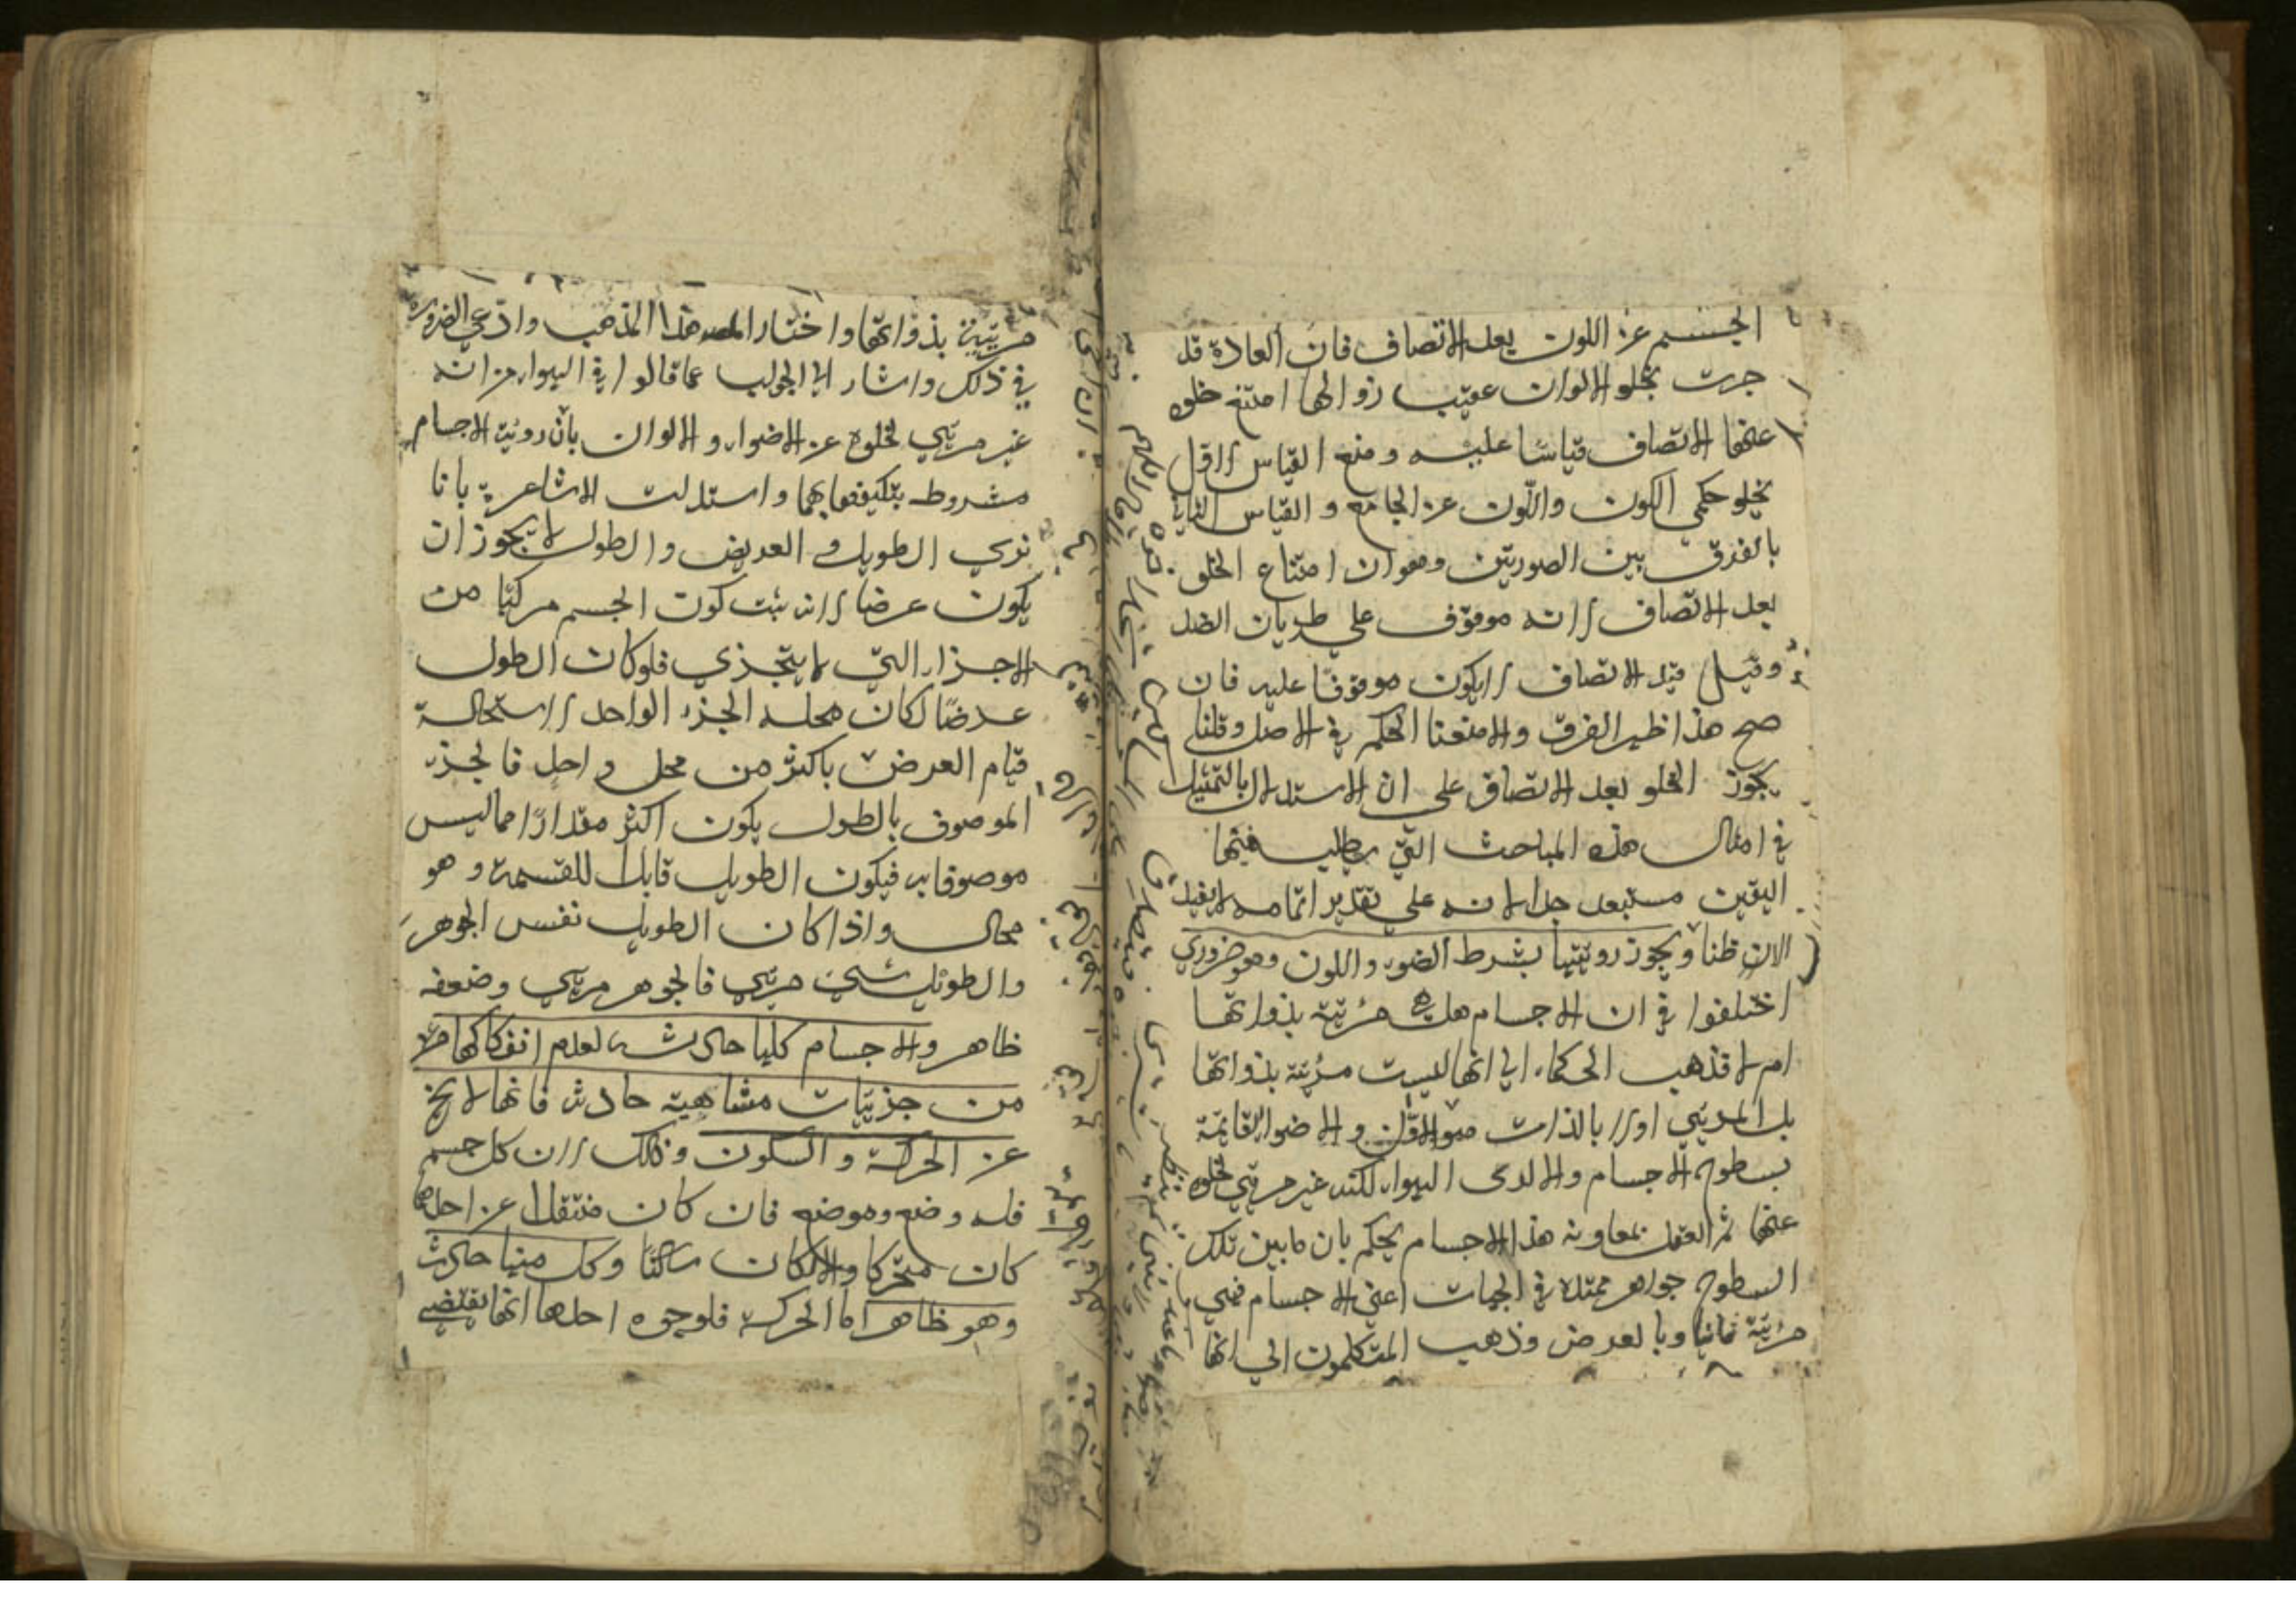 الجسم عن اللون بعد الاتصاف فان العادة قد
جرت بخلو الالوان عقيب زوالها امتنع خلوه
عنها الاتصاف قياسا عليه ومنع القياس الاول
بخلو حكمي الكون واللون عن الجامع والقياس الثاني
بالفرق بين الصورتين وهو ان امتناع الخلو
بعد الاتصاف لانه موقوف على طريان الضد
وقيل قبل الاتصاف لا يكون موقوفا عليه فان
صح هذا ظهر الفرق والا منعنا الحكم في الاصل وقلنا
يجوز الخلو بعد الاتصاف على ان الاستدلال بالتمثيل
في امثال هذه المباحث التي يطلب فيها
اليقين مستبعد جدا لانه على تقدير اتمامه لا يفيد
الان ظنا ويجوز رويتها بشرط الضوء واللون وهو ضروري
اختلفوا في ان الاجسام هل هي مرئية بذواتها
ام لا فذهب الحكماء الي انها ليست مرئية بذواتها
بل المرئي اولا بالذات هو الالوان والاضواء القائمة
بسطوح الاجسام والا لرئى الهواء لكنه غير مرئي لخلوه
عنها ثم العقل بمعاونة هذا الاجسام يحكم بان ما بين تلك
السطوح جواهر ممتدة في الجهات اعني الاجسام فهي
مرئية ثانيا وبالعرض وذهب المتكلمون الي انها
مرئية بذواتها واختار المصـ هذا المذهب وادعي الضرورة
في ذلك واشار الي الجواب عما قالوا في الهواء من انه
غير مرئي لخلوه عن الاضواء والالوان بان روية الاجسام
مشروط بتكيفها بهما واستدلت الاشاعرة بانا
نري الطويل والعريض والطول لا يجوز ان
يكون عرضا لانه ثبت كون الجسم مركبا من
الاجزاء التي لا يتجزي فلو كان الطول
عرضا لكان محله الجزء الواحد لاستحالة
قيام العرض باكثر من محل واحد فالجزء
الموصوف بالطول يكون اكثر مقدارا مما ليس
موصوفا به فيكون الطويل قابلا للقسمة وهو
محال واذا كان الطويل نفس الجوهر
والطويل شئ مرئي فالجوهر مرئي وضعفه
ظاهر والاجسام كلها حادثة لعدم انفكاكها من
من جزئيات متناهية حادثة فانها لا يخ
عن الحركة والسكون وذلك لان كل جسم
فله وضع وموضع فان كان منتقلا عن احدها
كان متحركا والا كان ساكنا وكل منها حادث
وهو ظاهر اما الحركة فلوجوه احدها انها يقتضي